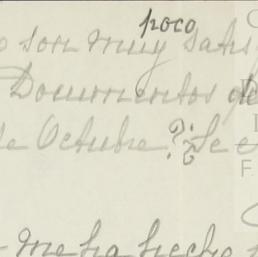 poco
o son muy satis
Documentos de
de Octubre? Se e
me ha hecho